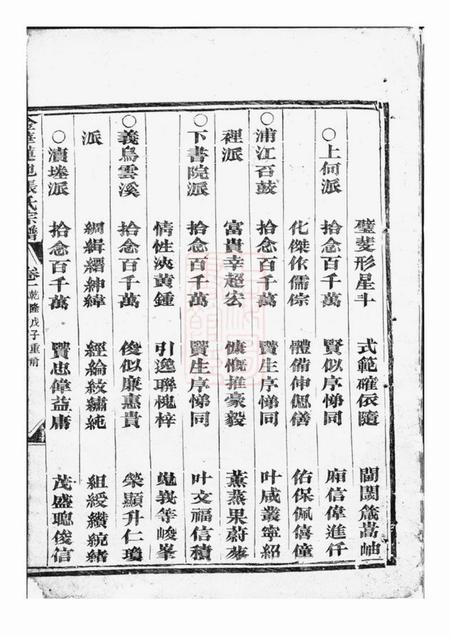 璧斐形星斗 式範確依隨 閭闤
○上何派 拾念百千萬 賢似序悌同 廟信偉進仟
化傑作儒宗 體備伸偲僐 佑保佩僖僮
○浦江百鼓 拾念百千萬 賢生序悌同 叶咸叢寧紹
裡派 富貴幸超宏 慷慨推豪毅 蕙蒸果蔚蓼
○下書院派 拾念百千萬 賢生序悌同 叶文福信積
情性泱黃鍾 引逸聯槐梓 等峻峯
○義烏雲溪 拾念百千萬 俊似廉惠貴 榮顯升仁瓊
派 綱緝縉紳緯 經綸紋繡純 組綬纘統緒
○瀆塍派 拾念百千萬 賢忠偉益庸 茂盛聰俊信
張氏宗譜 卷一 乾隆戊子重